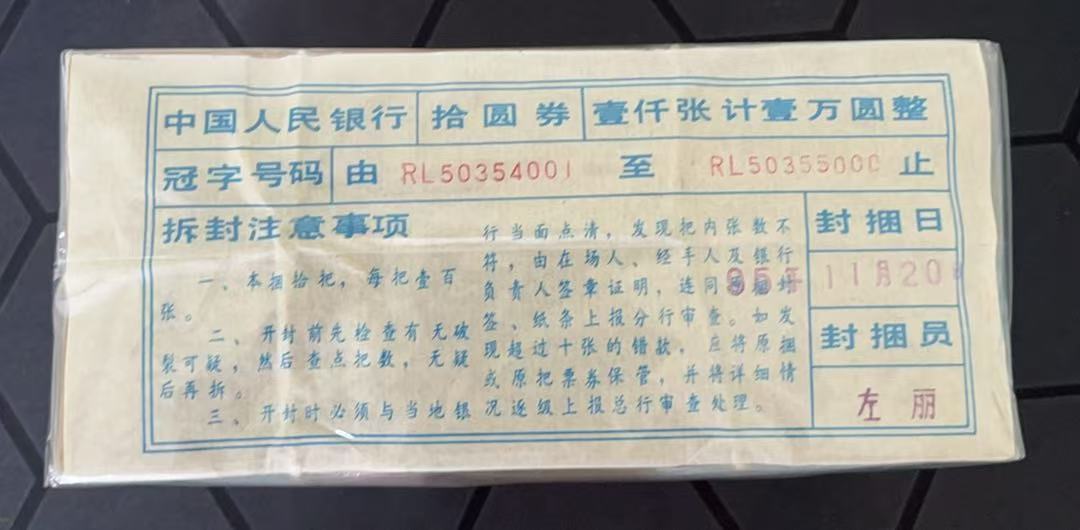 中国人民银行 拾圆券 壹仟张计壹万圆整
冠字号码 由 RL50354001 至 RL50355000 止
拆封注意事项
一、本捆拾把，每把壹百
张。
二、开封前先检查有无破
裂可疑，然后查点把数，无疑
后再拆。
三、开封时必须与当地银
行当面点清，发现把内张数不
符，由在场人、经手人及银行
负责人签章证明，连同原封
签、纸条上报分行审查。如发
现超过十张的错款，应将原捆
或原把票券保管，并将详细情
况逐级上报总行审查处理。
封捆日
95年 11月20
封捆员
左丽